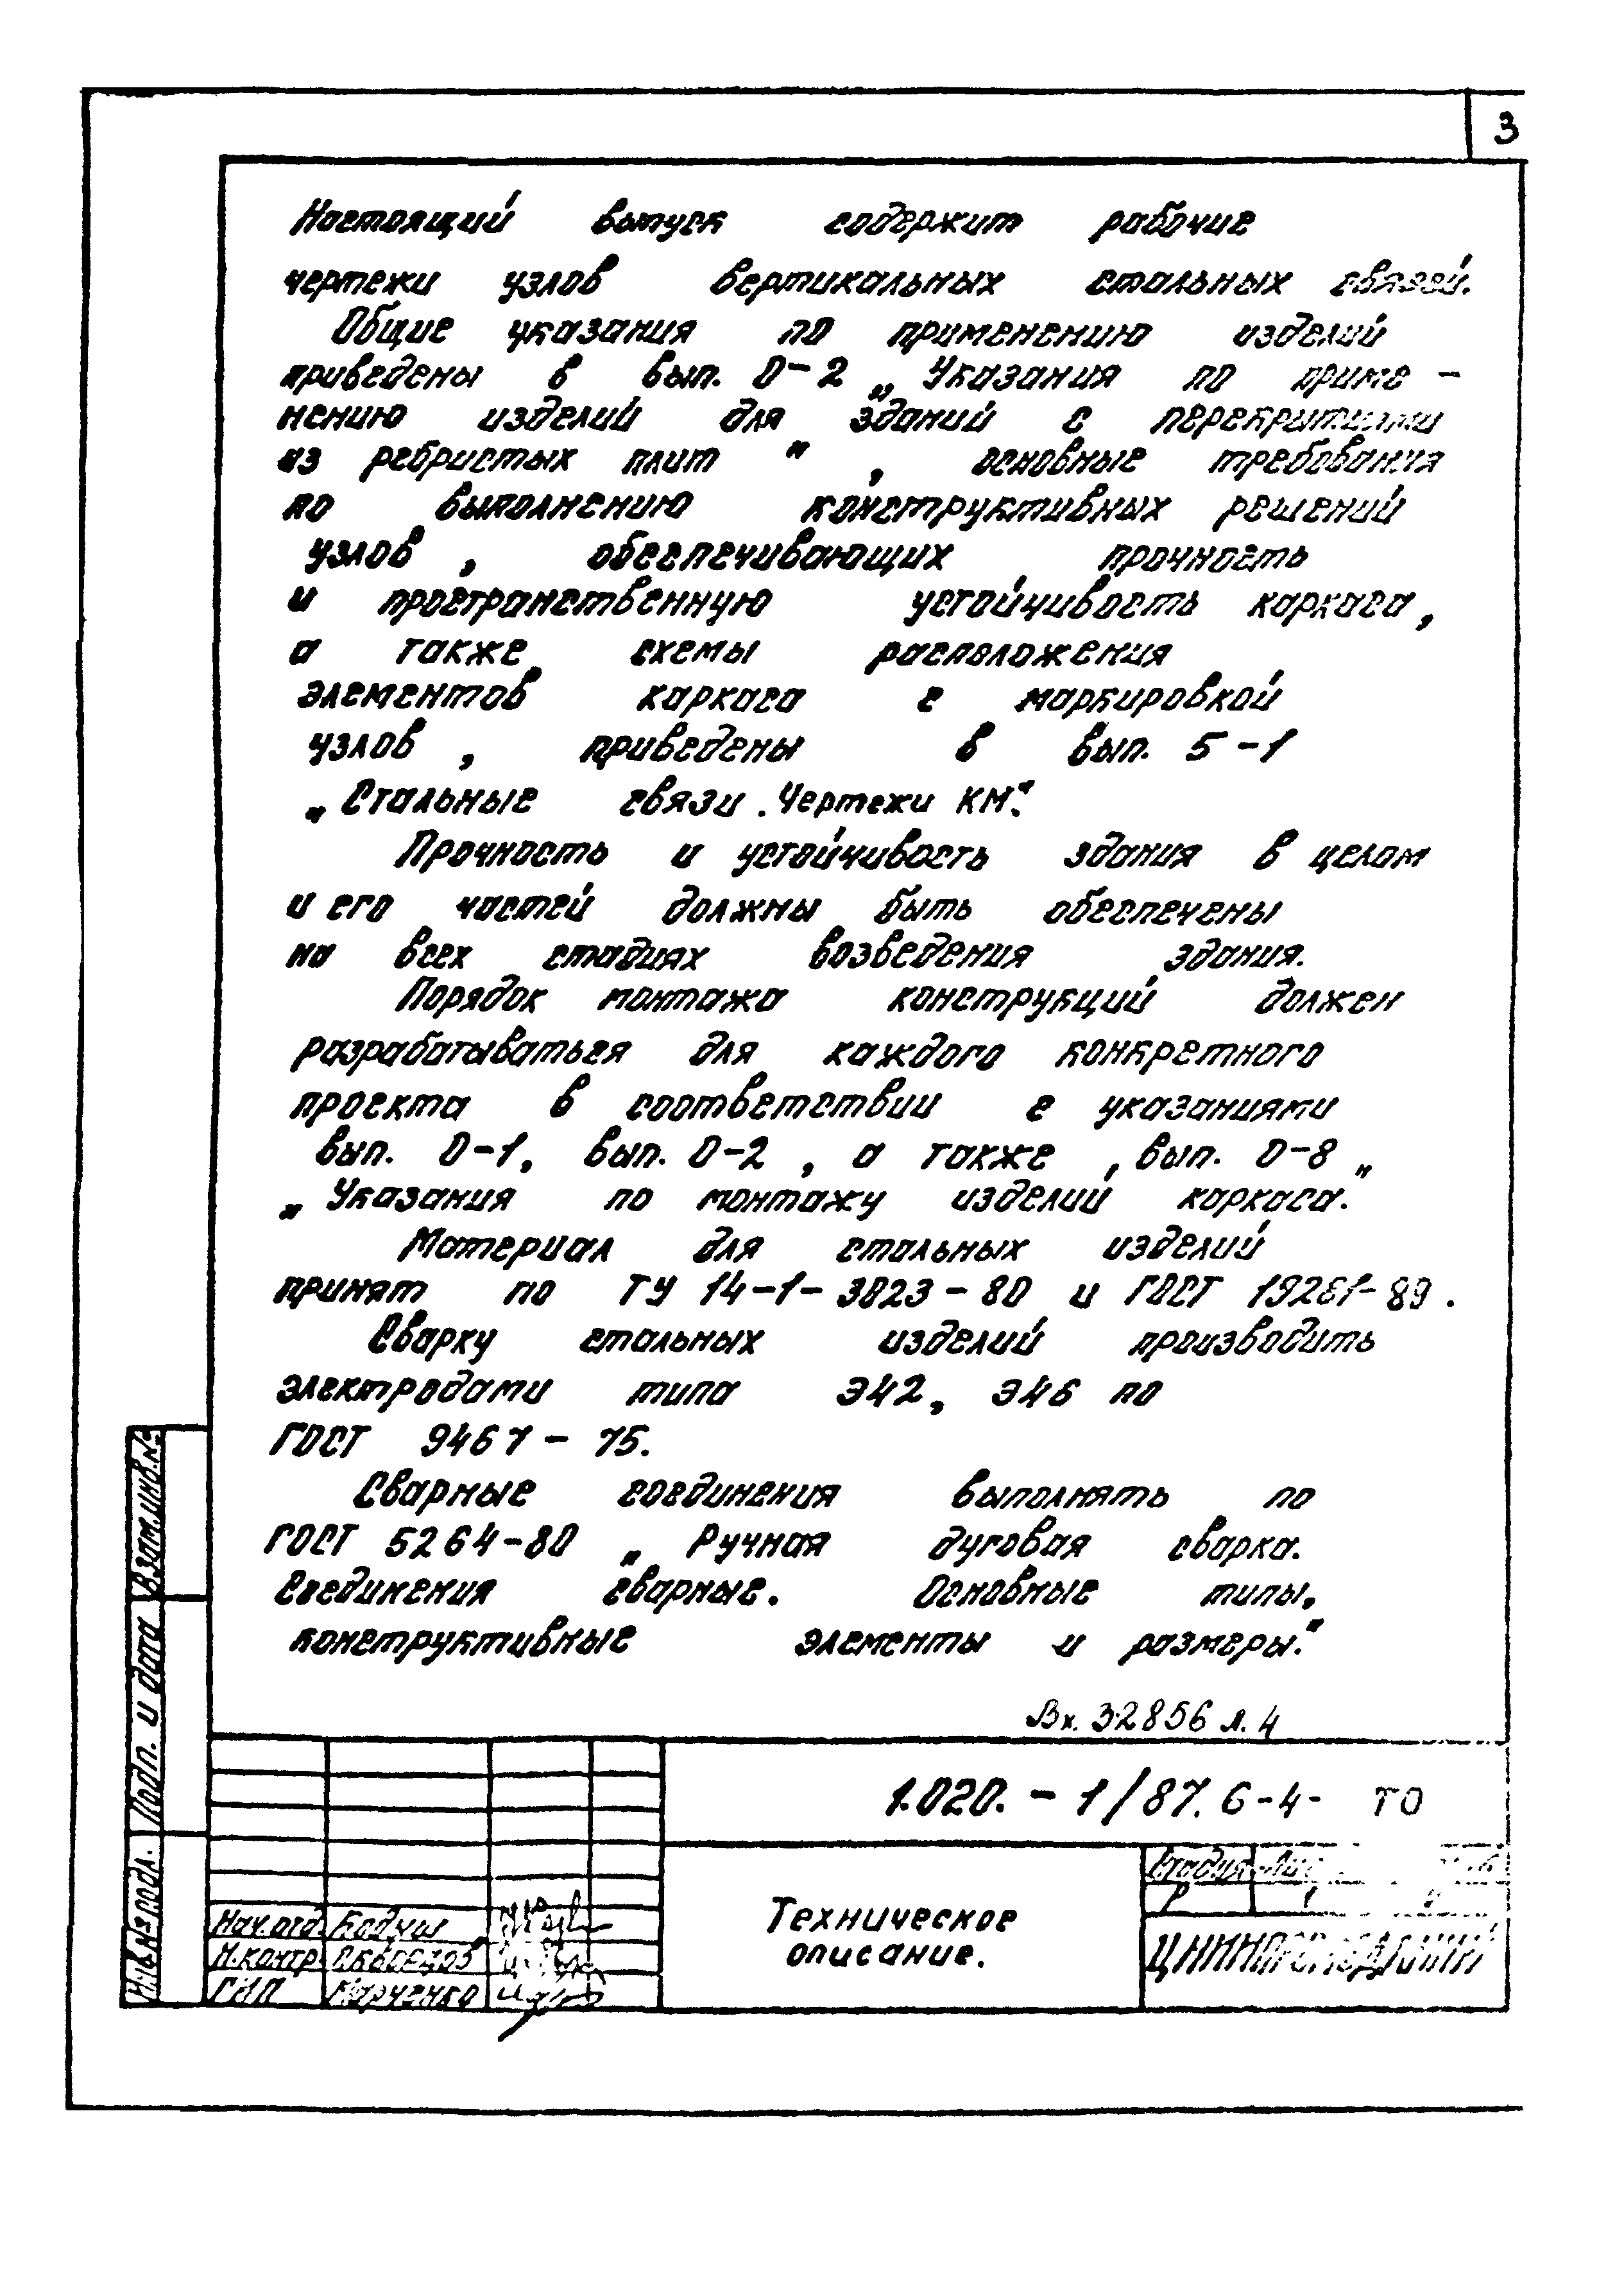 3
Настоящий выпуск содержит рабочие
чертежи узлов вертикальных стальных связей.
Общие указания по применению изделий
приведены в вып. 0-2 „Указания по приме-
нению изделий для зданий с перекрытиями
из ребристых плит", основные требования
по выполнению конструктивных решений
узлов, обеспечивающих прочность
и пространственную устойчивость каркаса,
а также схемы расположения
элементов каркаса с маркировкой
узлов, приведены в вып. 5-1
„Стальные связи. Чертежи КМ".
Прочность и устойчивость здания в целом
и его частей должны быть обеспечены
на всех стадиях возведения здания.
Порядок монтажа конструкций должен
разрабатываться для каждого конкретного
проекта в соответствии с указаниями
вып. 0-1, вып. 0-2, а также, вып. 0-8 „
„Указания по монтажу изделий каркаса."
Материал для стальных изделий
принят по ТУ 14-1-3023-80 и ГОСТ 19281-89.
Сварку стальных изделий производить
электродами типа Э42, Э46 по
ГОСТ 9467-75.
Сварные соединения выполнять по
ГОСТ 5264-80 „Ручная дуговая сварка.
Соединения сварные. Основные типы,
конструктивные элементы и размеры."
Вх. 32856 л. 4
1.020.-1/87. 6-4- ТО
Техническое
описание.
Стадия
Р 1
Нач.отд. Бодуш
Н.контр.
ГИП Марченко
Взам.инв.№
Подп. и дата
Инв.№ подл.